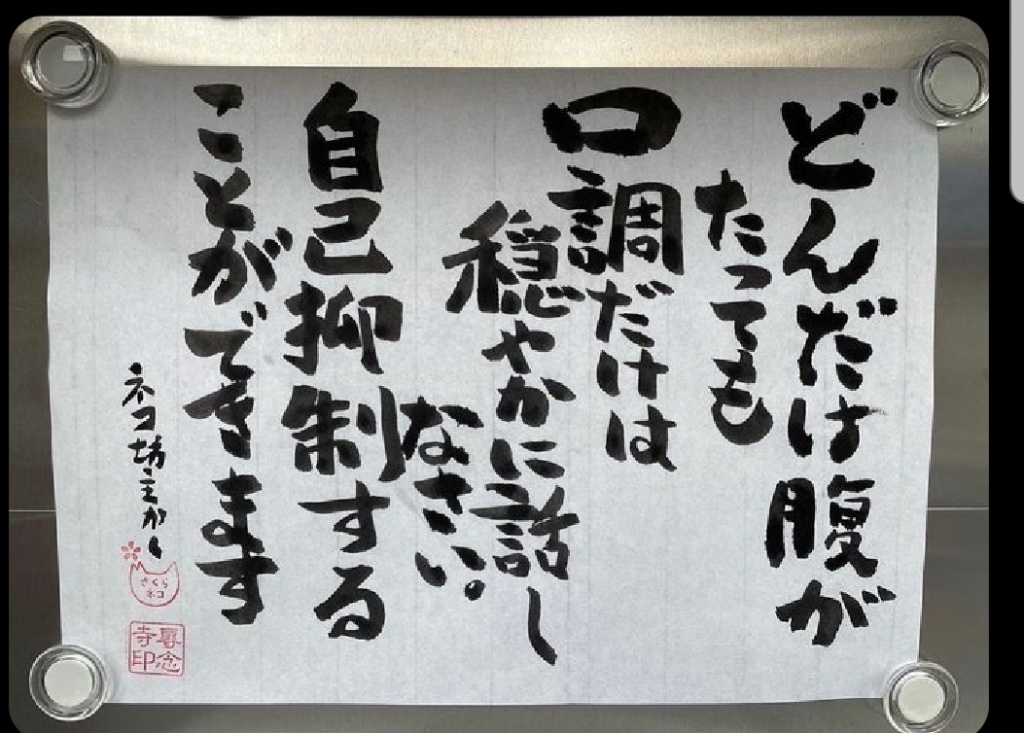 どんだけ腹が
たっても
口調だけは
穏やかに話し
なさい。
自己抑制する
ことが、できます
ネコ坊主かく
さくら
ネコ
専念
寺印